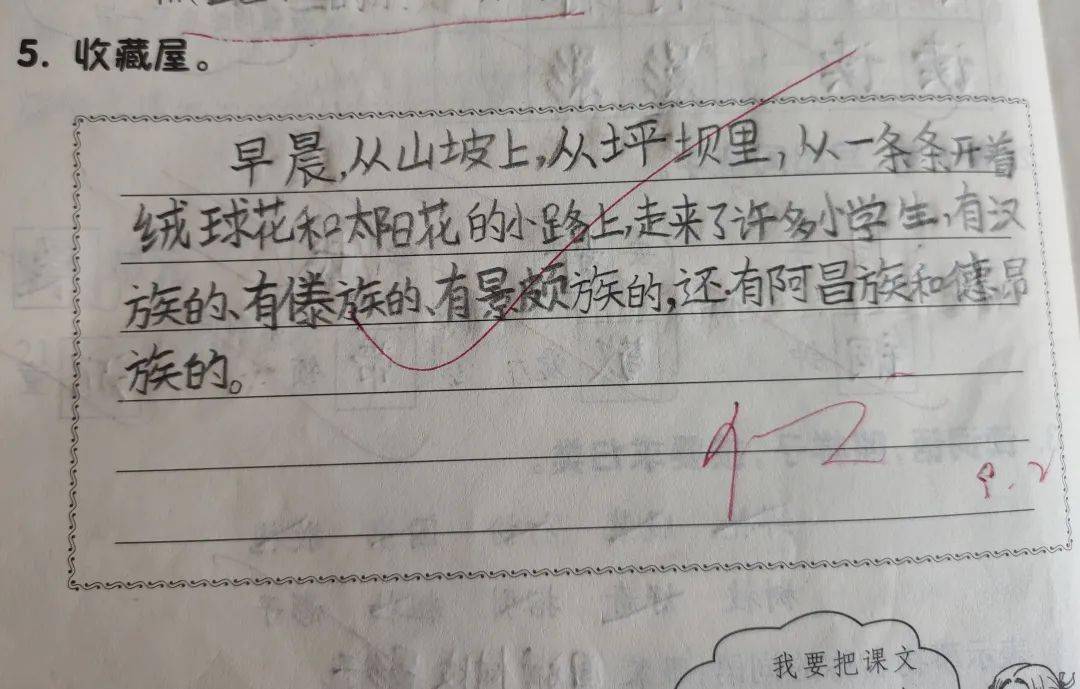 5. 收藏屋。
早晨,从山坡上,从坪坝里,从一条条开着
绒球花和太阳花的小路上,走来了许多小学生,有汉
族的、有傣族的、有景颇族的,还有阿昌族和德昂
族的。
9.2
我要把课文